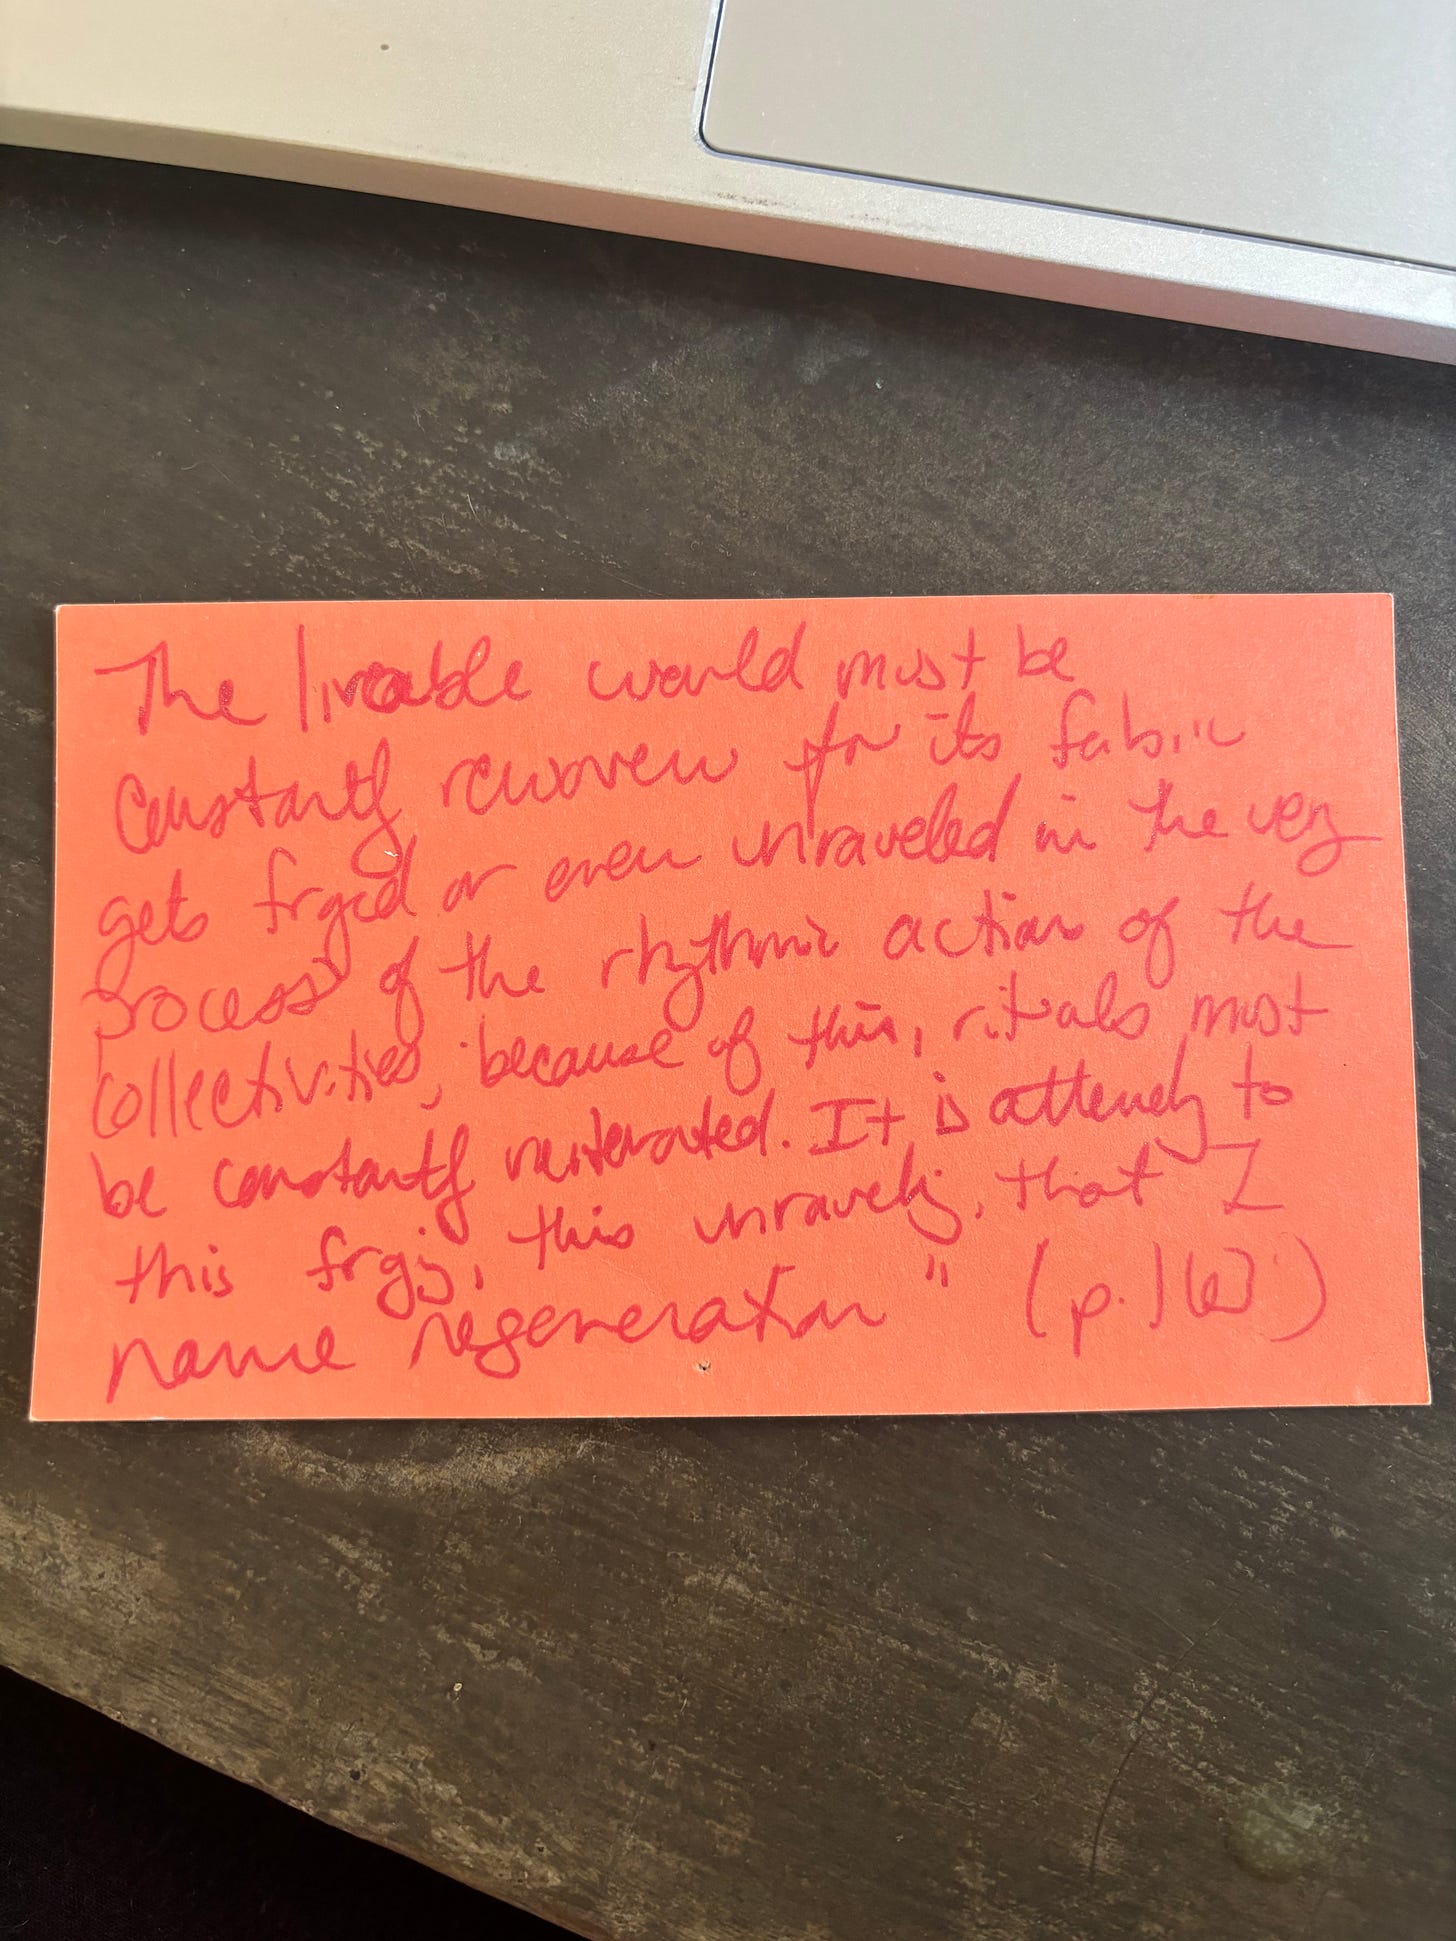 The livable world must be
constantly rewoven for its fabric
gets frayed or even unraveled in the very
process of the rhythmic action of the
collectivities, because of this, rituals must
be constantly reiterated. It is attending to
this fraying, this unraveling, that I
name regeneration" (p.